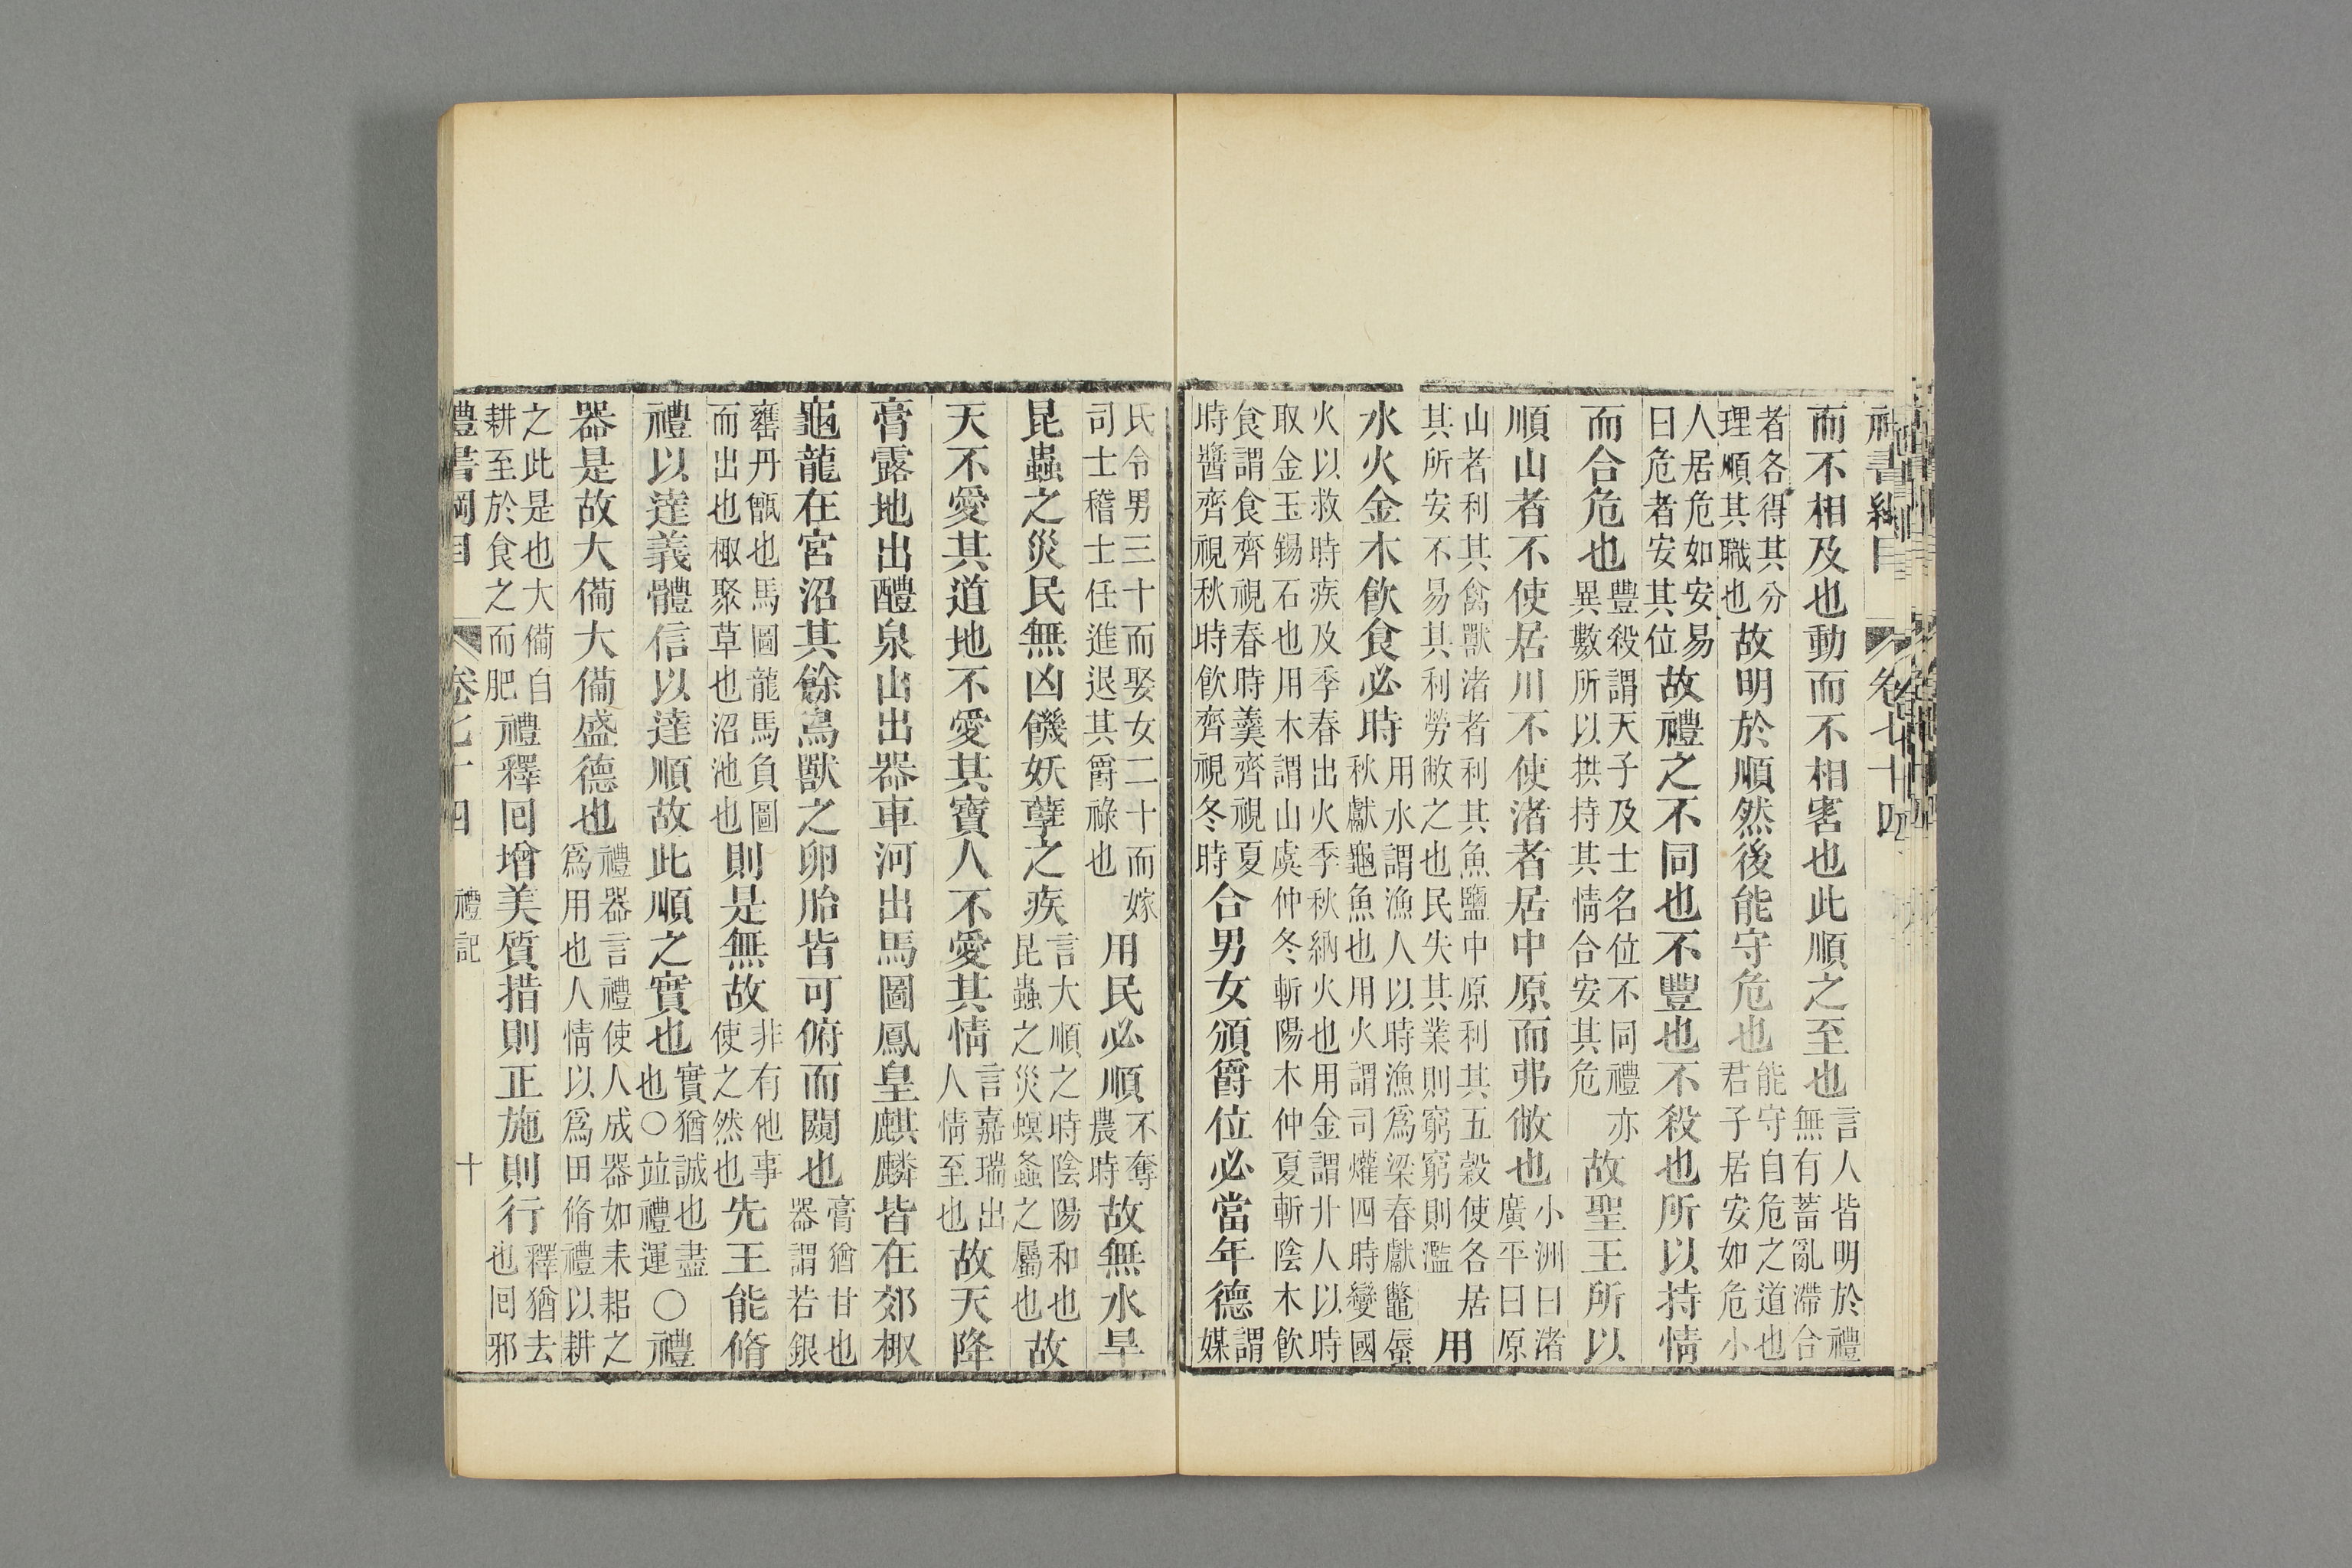 禮書綱目　卷七十四
而不相及也動而不相害也此順之至也言人皆明於禮無有蓄亂滯合
者各得其分理順其職也故明於順然後能守危也能守自危之道也君子居安如危小
人居危如安易曰危者安其位故禮之不同也不豐也不殺也所以持情
而合危也豐殺謂天子及士名位不同禮亦異數所以拱持其情合安其危故聖王所以
順山者不使居川不使渚者居中原而弗敝也小洲曰渚廣平曰原
山者利其禽獸渚者利其魚鹽中原利其五穀使各居其所安不易其利勞敝之也民失其業則窮窮則濫用
水火金木飲食必時用水謂漁人以時漁爲梁春獻鼈蜃秋獻龜魚也用火謂司爟四時變國
火以救時疾及季春出火季秋納火也用金謂廾人以時取金玉錫石也用木謂山虞仲冬斬陽木仲夏斬陰木飲
食謂食齊視春時羹齊視夏時醬齊視秋時飲齊視冬時合男女頒爵位必當年德謂媒
氏令男三十而娶女二十而嫁司士稽士任進退其爵祿也用民必順不奪農時故無水旱
昆蟲之災民無凶饑妖孽之疾言大順之時陰陽和也昆蟲之災螟螽之屬也故
天不愛其道地不愛其寶人不愛其情言嘉瑞出人情至也故天降
膏露地出醴泉山出器車河出馬圖鳳皇麒麟皆在郊棷
龜龍在宮沼其餘鳥獸之卵胎皆可俯而闚也膏猶甘也器謂若銀
甕丹甑也馬圖龍馬負圖而出也棷聚草也沼池也則是無故非有他事使之然也先王能脩
禮以達義體信以達順故此順之實也實猶誠也盡也○竝禮運○禮
器是故大備大備盛德也禮器言禮使人成器如耒耜之爲用也人情以爲田脩禮以耕
之此是也大備自耕至於食之而肥禮釋回增美質措則正施則行釋猶去也回邪
禮書綱目　卷七十四　禮記　十